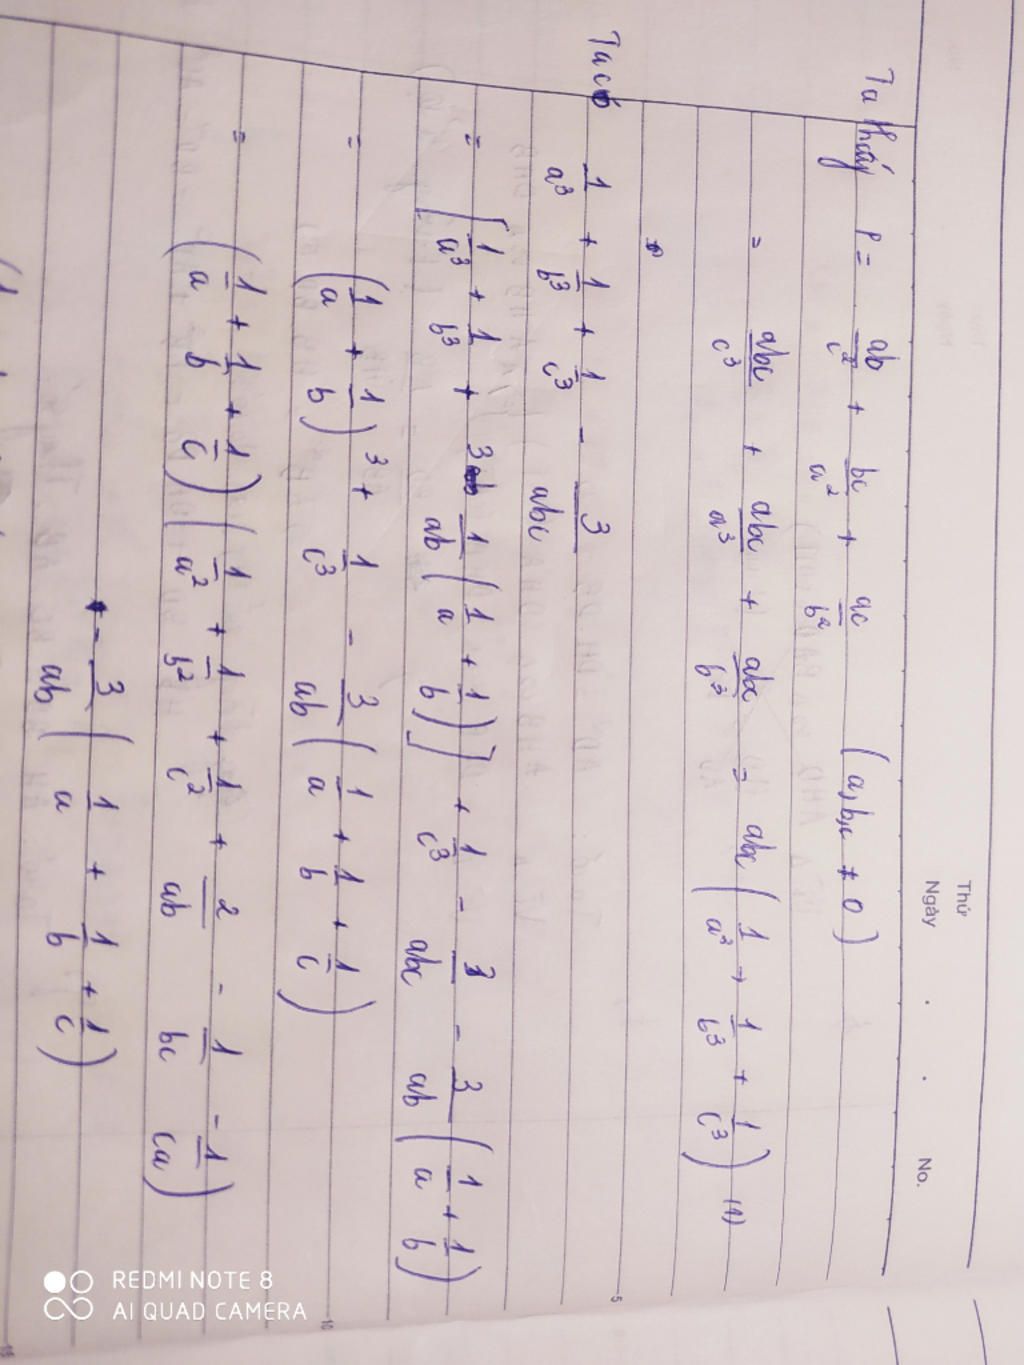 Thứ
Ngày . . No.
Ta thấy P = ab/c² + bc/a² + ac/b² (a, b, c ≠ 0)
= abc/c³ + abc/a³ + abc/b³ = abc (1/a³ + 1/b³ + 1/c³) (1)
Ta có 1/a³ + 1/b³ + 1/c³ - 3/abc
= [1/a³ + 1/b³ + 3 1/ab (1/a + 1/b)] + 1/c³ - 3/abc - 3/ab (1/a + 1/b)
= (1/a + 1/b)³ + 1/c³ - 3/ab (1/a + 1/b + 1/c)
= (1/a + 1/b + 1/c) (1/a² + 1/b² + 1/c² + 2/ab - 1/bc - 1/ca)
- 3/ab (1/a + 1/b + 1/c)
5
10
15
REDMI NOTE 8
AI QUAD CAMERA